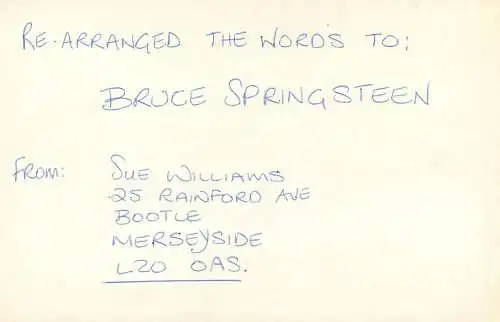 RE-ARRANGED THE WORDS TO:
BRUCE SPRINGSTEEN
FROM: SUE WILLIAMS
25 RAINFORD AVE
BOOTLE
MERSEYSIDE
L20 OAS.